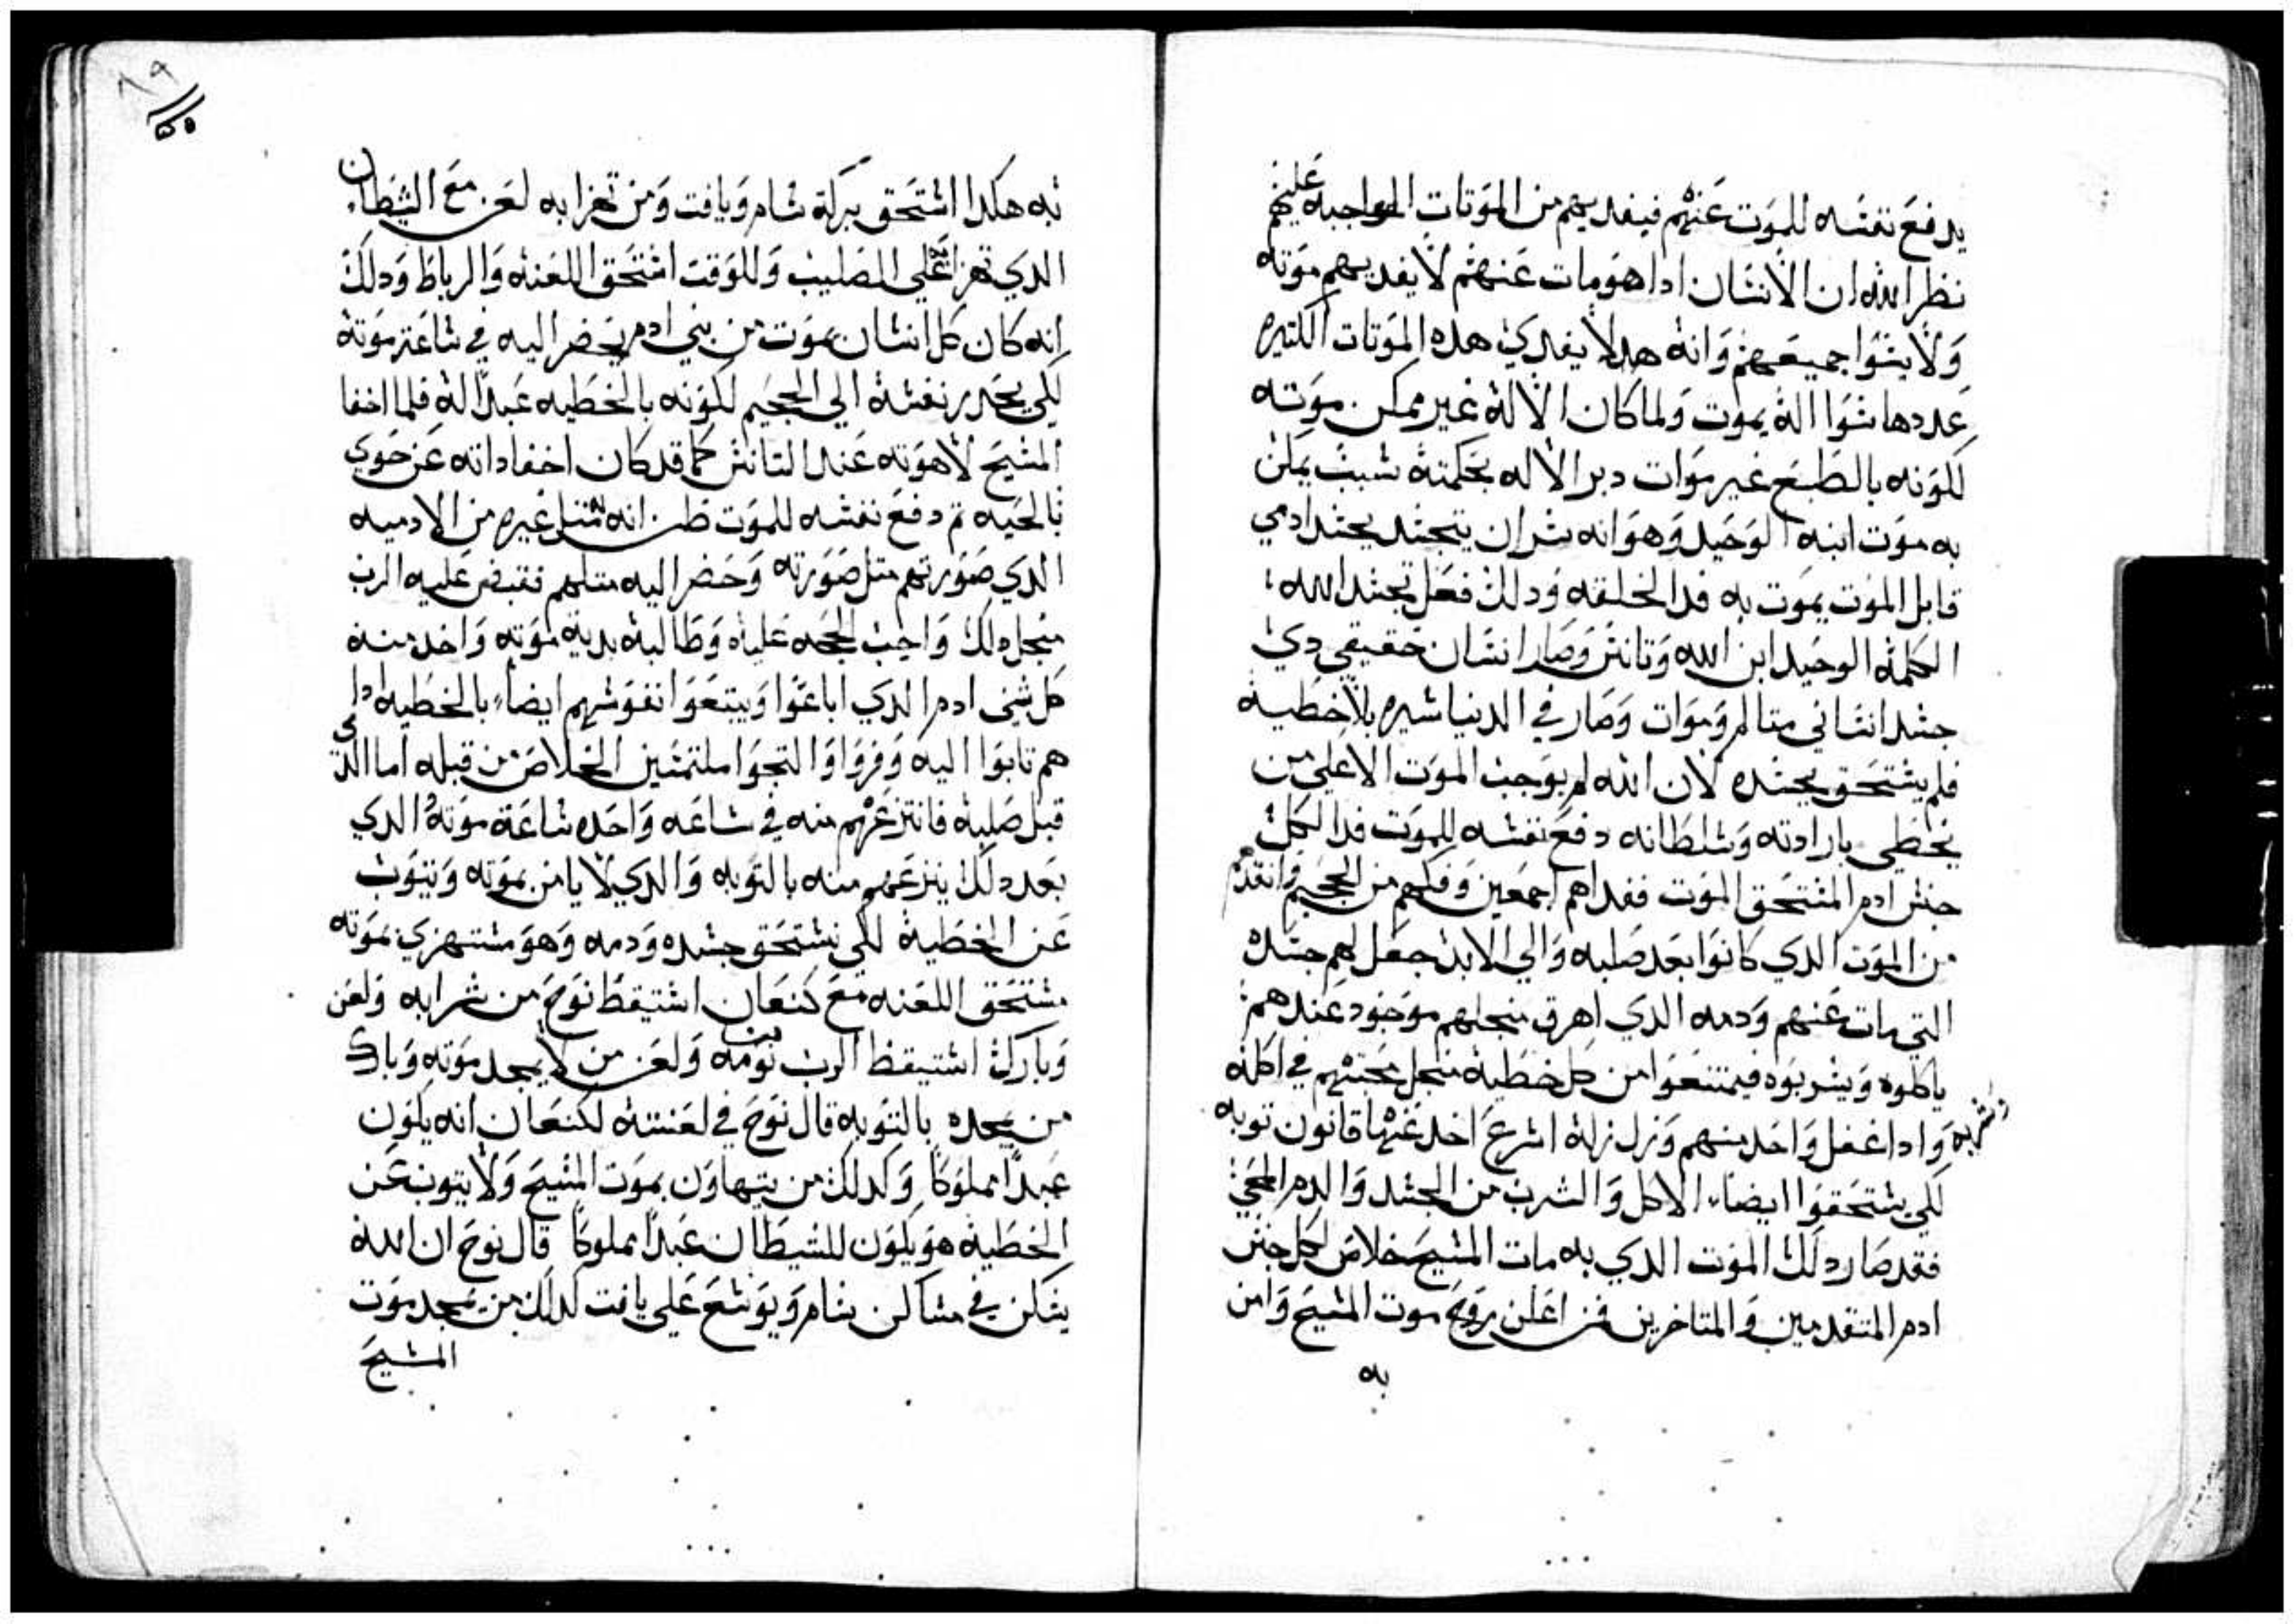 يدفع نفسه للموت عنهم فيفديهم من الموتات الواجبه عليهم
نظر الله ان الانسان اداهو مات عنهم لا يفديهم موته
ولا يسوا جميعهم وانه هدا لا يفدي هده الموتات الكتيره
عددها سوا اله يموت ولما كان الاله غير ممكن موته
لكونه بالطبع غير موات دبر الاله بحكمته سبب يمكن
به موت ابنه الوحيد وهو انه سر ان يتجسد بجسد ادمي
قابل الموت يموت به فدا الخليقه ودالك فعل تجسد الله
الكلمه الوحيد ابن الله وتانس وصار انسان حقيقي دي
جسد انساني متالم وموات وصار في الدنيا سيره بلا خطيه
فلم يستحق بجسده لان الله لم يوجب الموت الا علي من
يخطي بارادته وسلطانه دفع نفسه للموت فدا لكل
جنس ادم المستحق الموت ففداهم اجمعين وفكهم من الجحيم وانقدهم
من الموت الدي كانوا بعد صلبه والي الابد جعل لهم جسده
التي مات عنهم ودمه الدي اهرق منجلهم موجود عندهم
ياكلوه ويشربوه فيمتنعوا من كل خطيه منجل محبتهم في اكله
وشربه وادا غفل واحد منهم وزل زله اسرع اخد عنها قانون توبه
لكي يستحقوا ايضاء الاكل والشرب من الجسد والدم المحيي
فقد صار دلك الموت الدي به مات المسيح خلاص لكل جنس
ادم المتقدمين والمتاخرين فمن اعلن بروح موت المسيح وامن
به
٨٩
به هكدا استحق بركة سام ويافت ومن تهزا به لعن مع الشيطان
الدي تهزا علي الصليب وللوقت استحق اللعنه والرباط ودلك
انه كان كل انسان يموت من بني ادم يحضر اليه في ساعة موته
لكي يحدر نفسه الي الجحيم لكونه بالخطيه عبدا له فلما اخفا
المسيح لاهوته عند التانس كما قد كان اخفا داته عن حوي
بالحيه تم دفع نفسه للموت ظن انه متل غيره من الادميه
الدي صورتهم متل صورته وحضر اليه متلهم فقبض عليه الرب
منجل دلك واجب الحجه عليه وطالبه بدية موته واخد منه
كل شي ادم الدي اباعوا ويبتعوا نفوسهم ايضاء بالخطيه ادا
هم تابوا اليه وفروا والتجوا ملتمسين الخلاص من قبله اما الدي
قبل صلبه فانتزعهم منه في ساعه واحده ساعة موته الدي
بعد دلك ينزعهم منه بالتوبه والدي لا يامن بموته ويتوب
عن الخطيه لكي يستحق جسده ودمه وهو مستهزي بموته
مستحق اللعنه مع كنعان استيقظ نوح من شرابه ولعن
وبارك استيقظ الرب من نومه ولعن من لا يمجد موته وبارك
من يمجده بالتوبه قال نوح في لعنته لكنعان انه يكون
عبدا مملوكا وكدلك من يتهاون بموت المسيح ولا يتوب عن
الخطيه هو يكون للشيطان عبدا مملوكا قال نوح ان الله
يسكن في مساكن سام ويوسع علي يافت كدلك من يمجد موت
المسيح